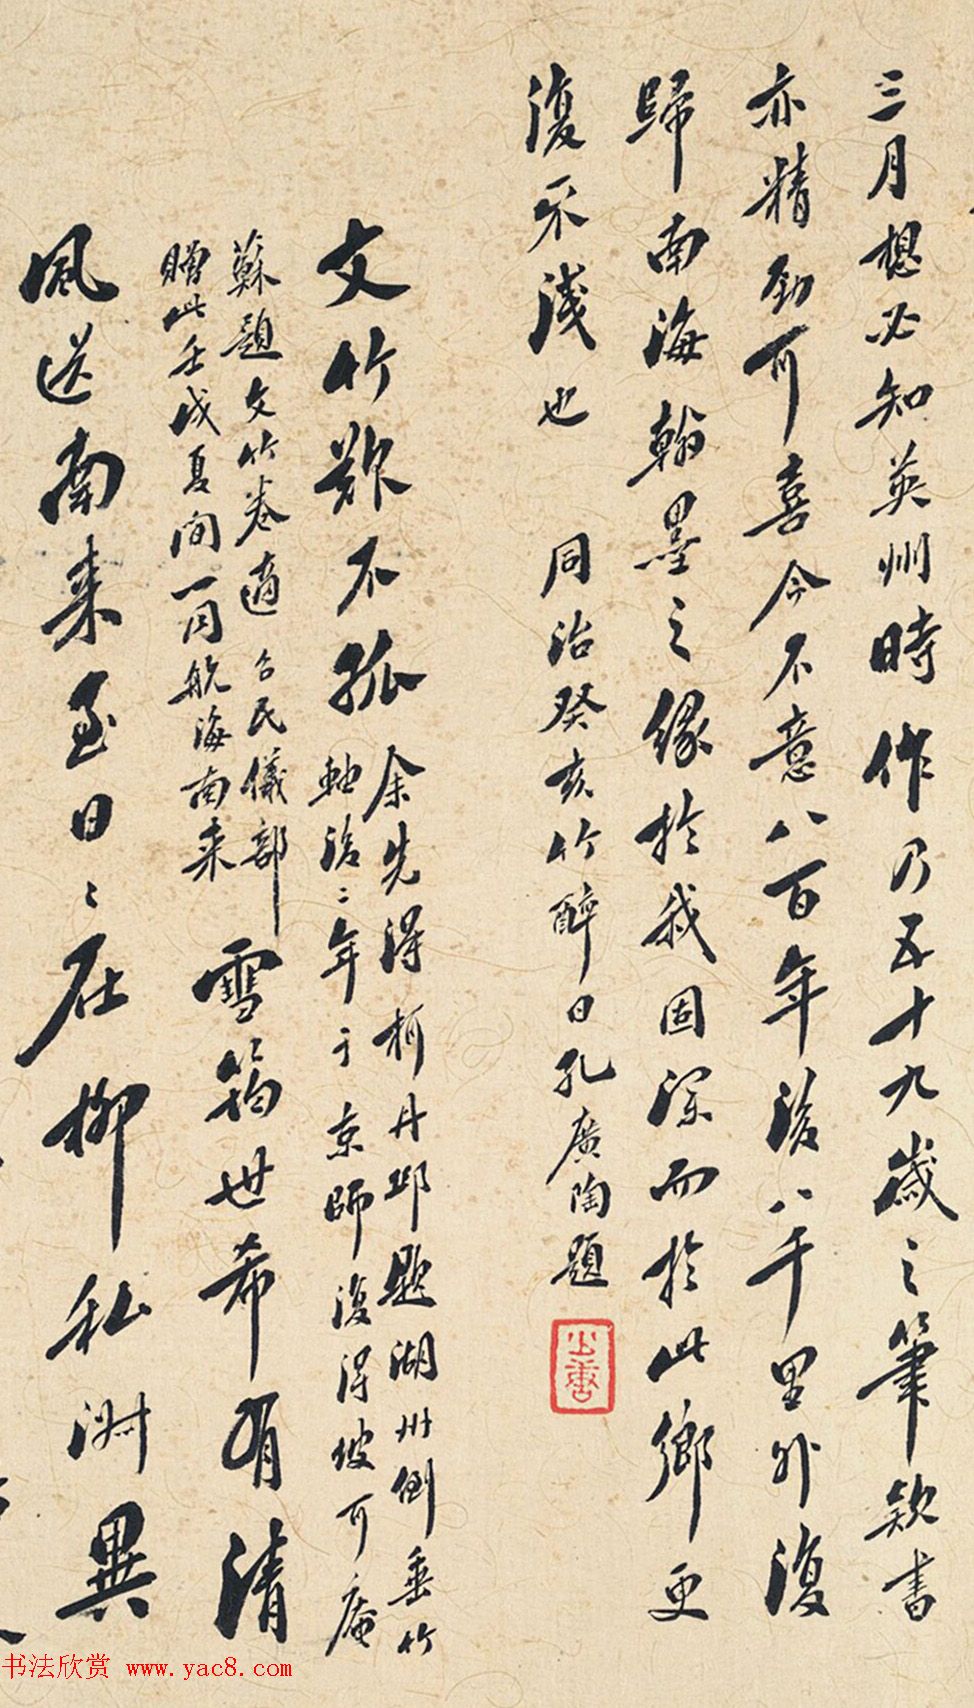 三月想必知英州時作乃五十九歲之筆款書
亦精勁可喜今不意八百年後八千里外復
歸南海翰墨之緣於我固深而於此鄉更
復不淺也 同治癸亥竹醉日孔廣陶題
文竹欺不孤
余先得柯丹邱題湖州倒垂竹
軸治二年于京師復得坡可庵
蘇題文竹卷適台民儀部
贈此壬戌夏間一同航海南來
雪筠世希有清
風送南來至日日在柳私淵異
书法欣赏 www.yac8.com